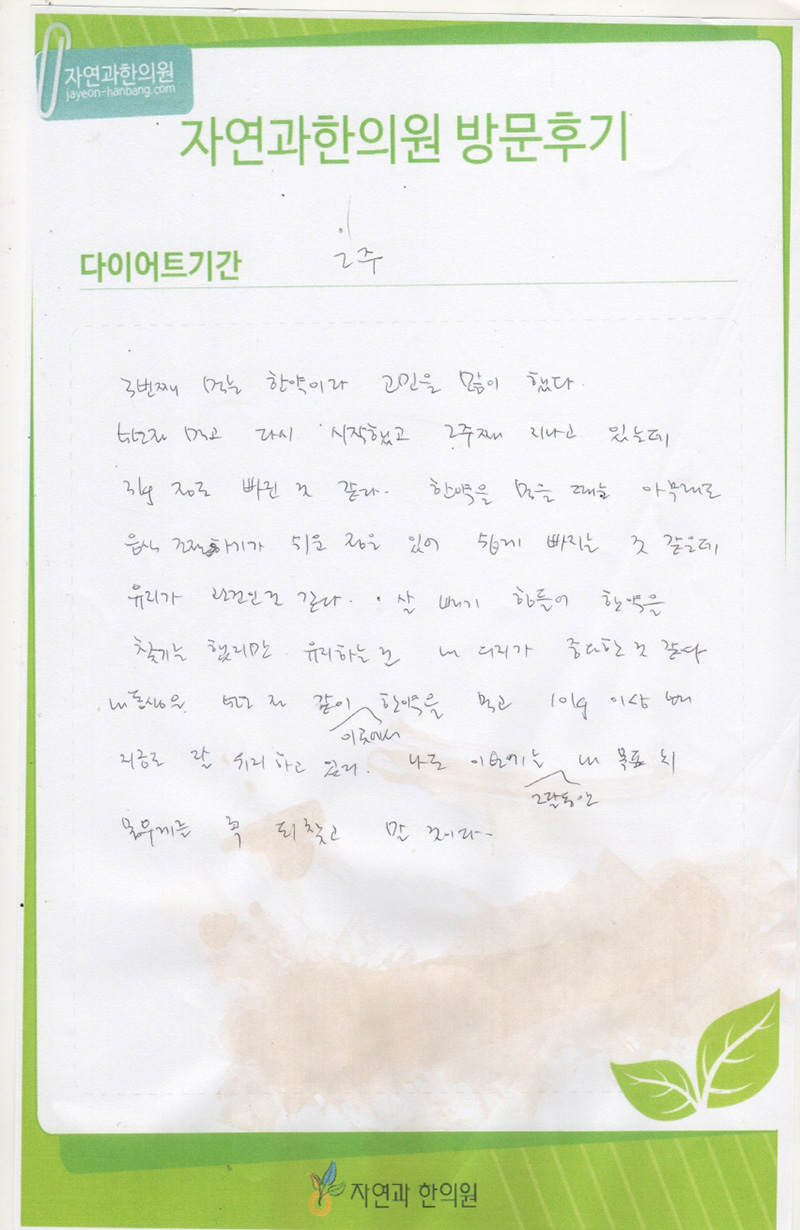 자연과한의원
jayeon-hanbang.com
자연과한의원 방문후기
다이어트기간 2주
3번째 먹는 한약이라 고민을 많이 했다.
먹고 다시 시작했고 2주째 지나고 있는데
3kg 정도 빠진 것 같다. 한약을 먹을 때는 아무래도
음식 조절하기가 쉬운 점은 있어 쉽게 빠지는 것 같은데
유지가 관건인것 같다. 살 빼기 힘들어 한약을
찾기는 했지만 유지하는 건 내 의지가 중요한 것 같다
내동생은 같이 한약을 먹고 10kg 이상 빼
이곳에서
지금도 잘 유지하고 있다. 나도 이번에는 내 목표치
2달동안
몸무게를 꼭 되찾고 말 것이다.
자연과 한의원